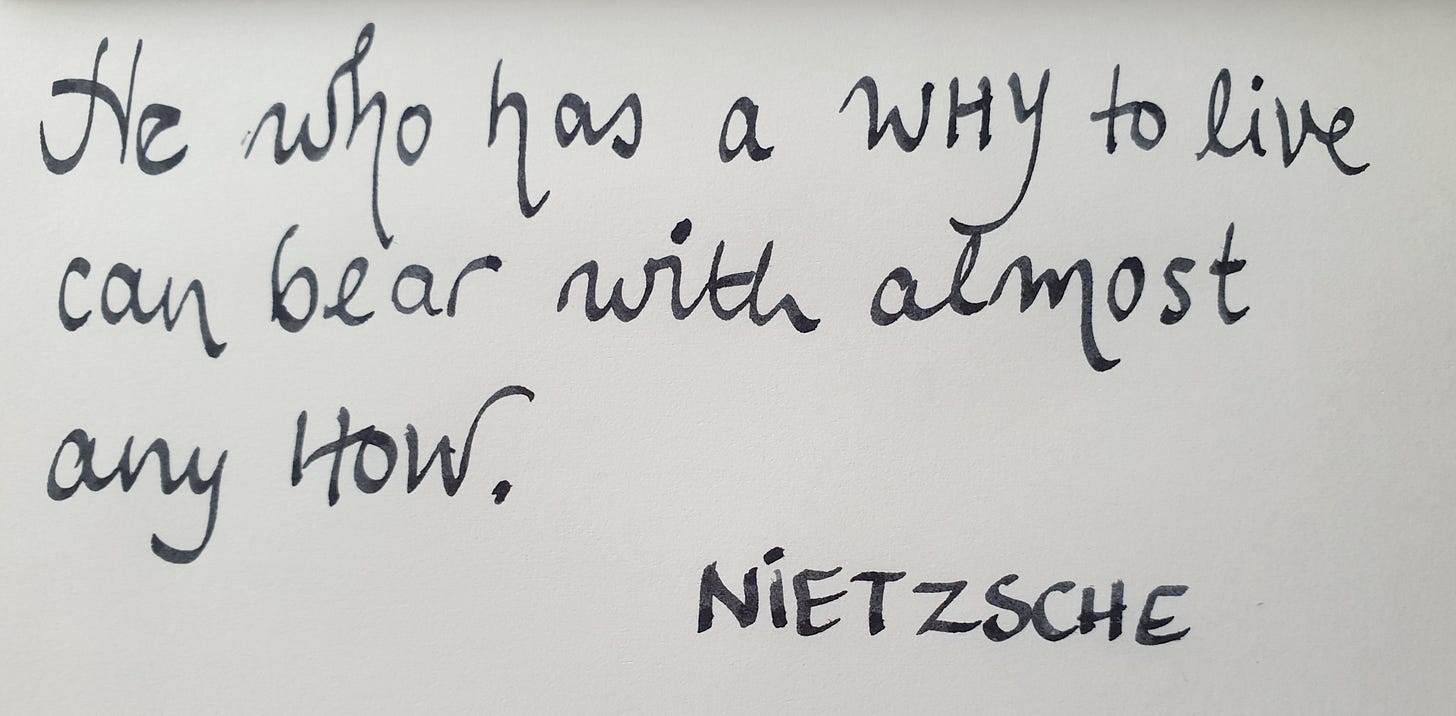 He who has a WHY to live
can bear with almost
any HOW.
NiETZSCHE